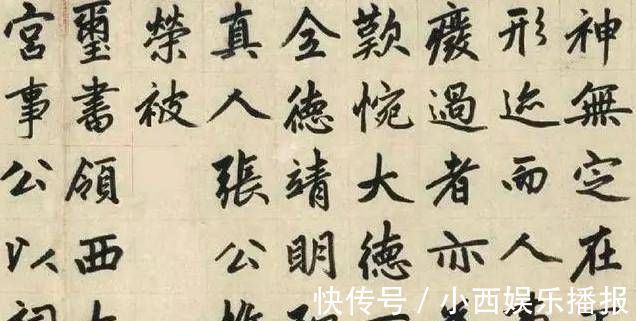 神無定在
形迹而人
癈過者亦
歎惋大德
全德靖明
真人張公
榮被
璽書領西
宮事公以
快传号 / 小西娱乐播报